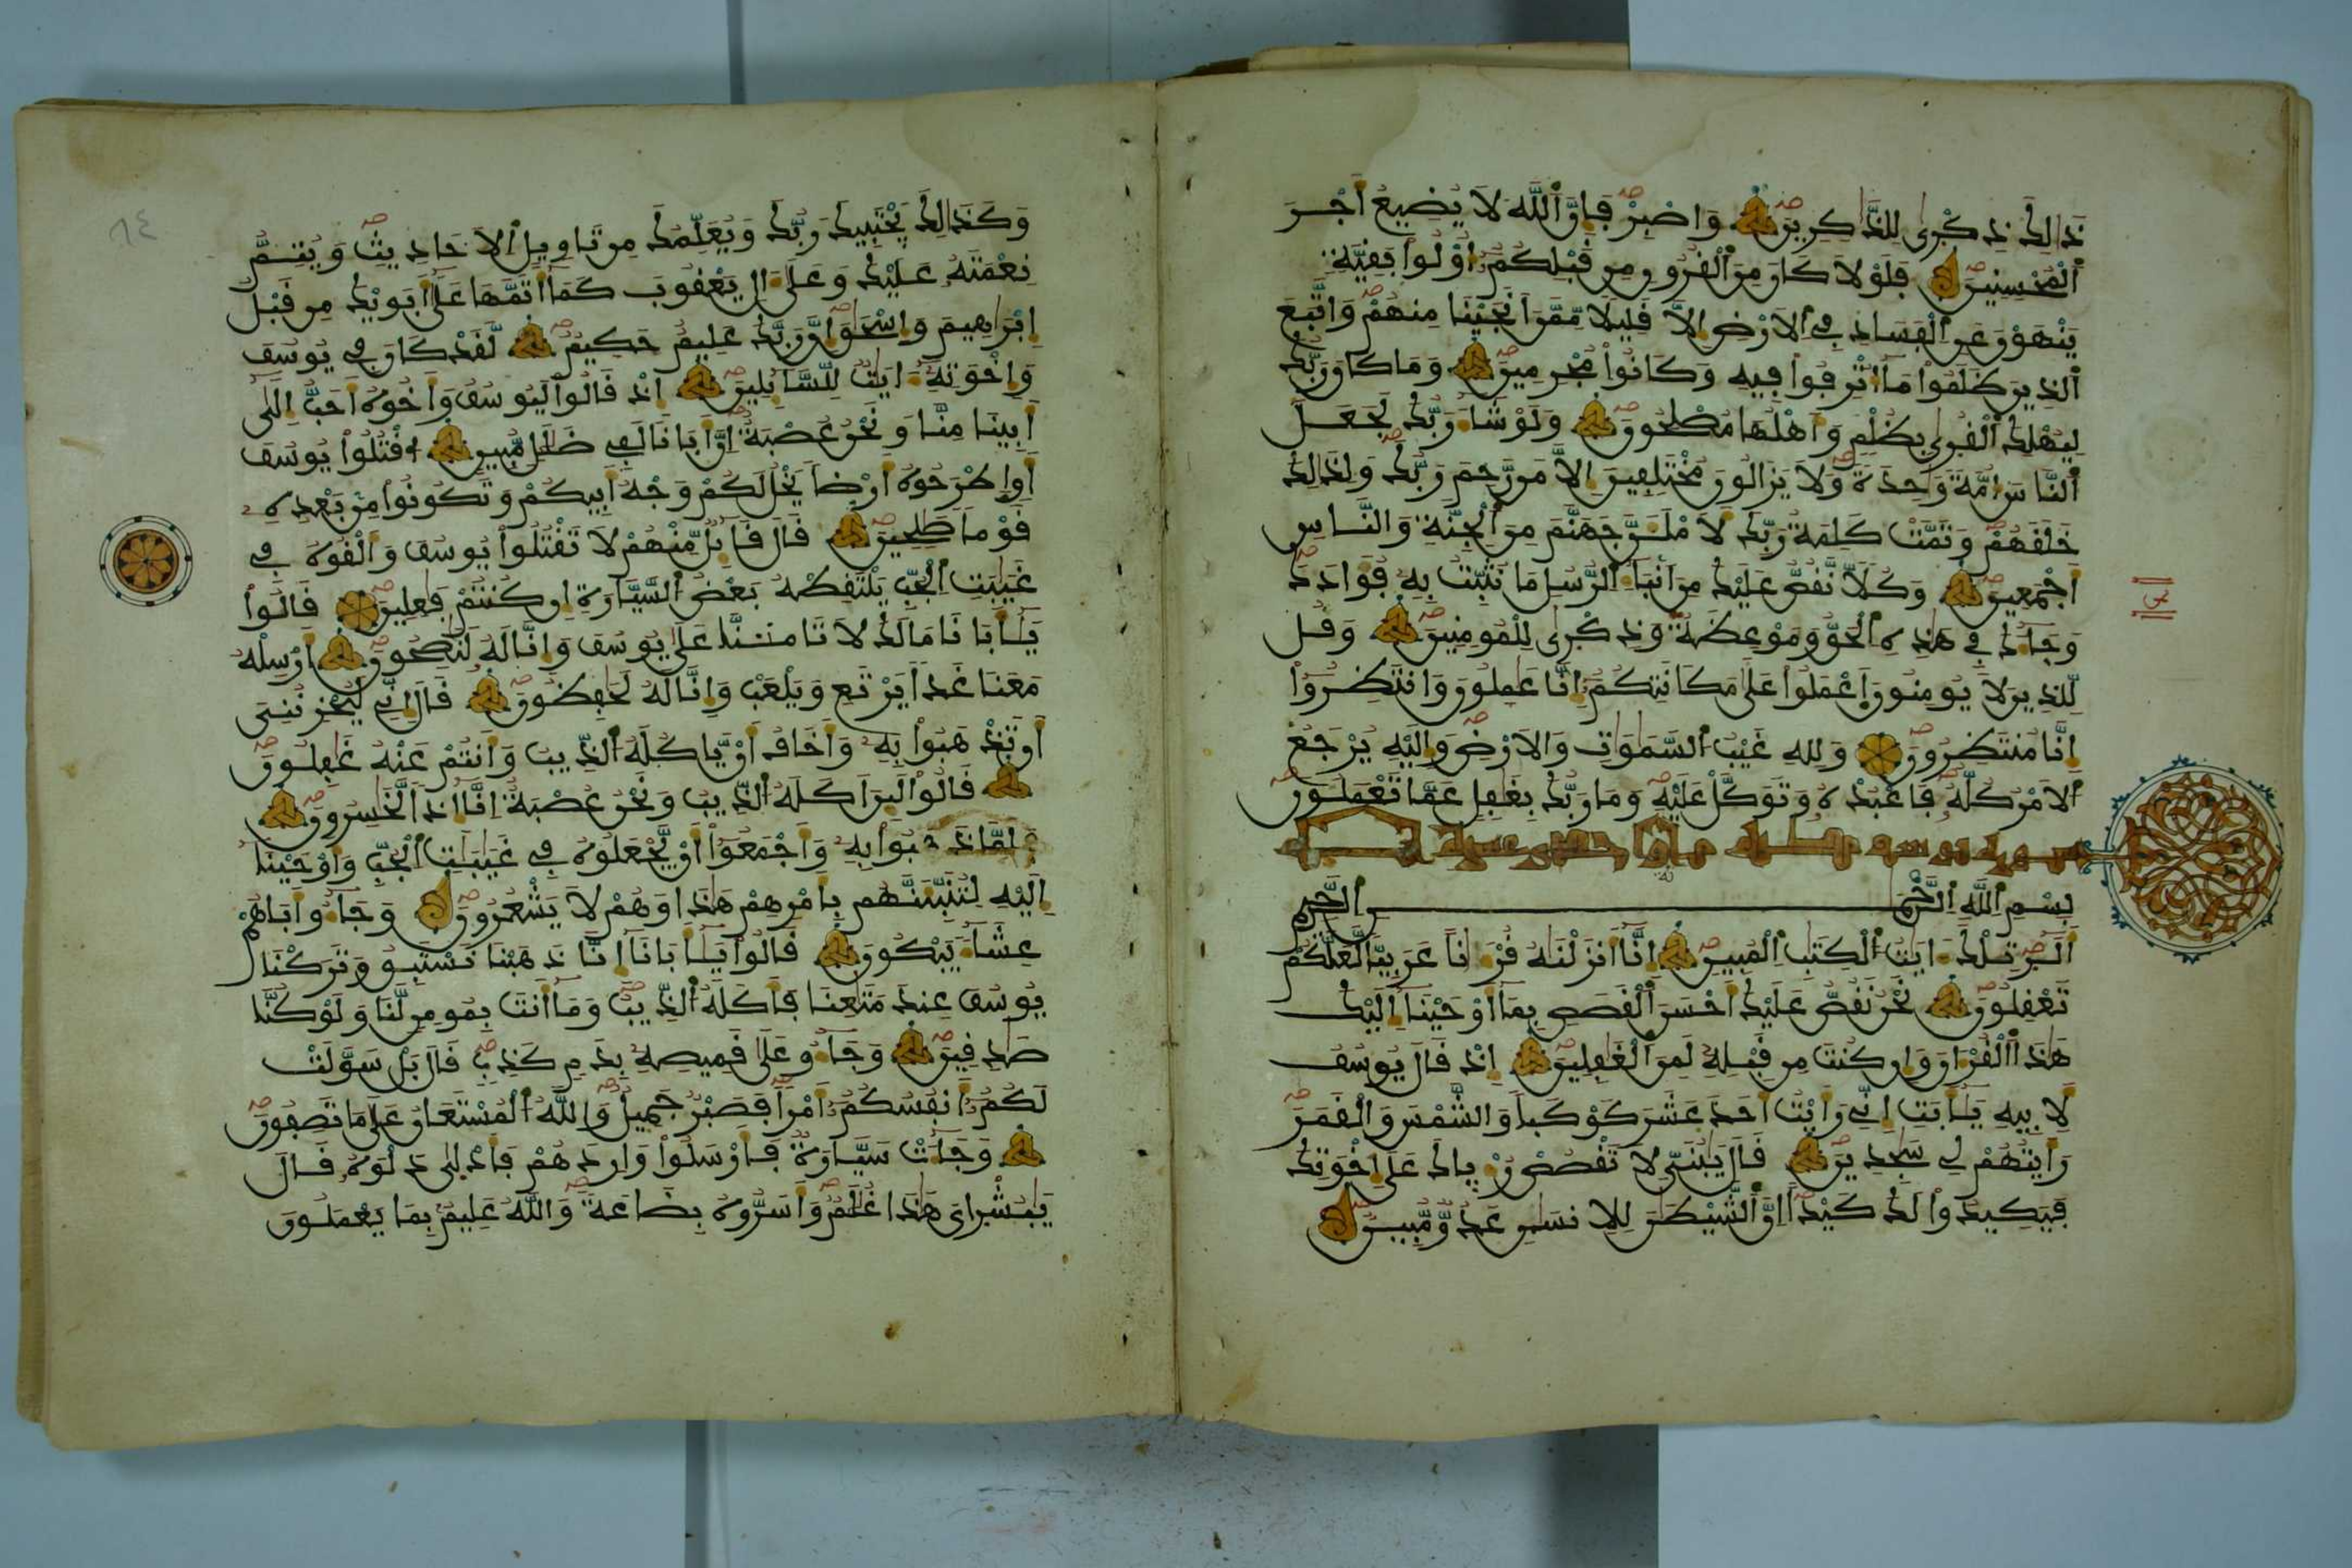 ذَٰلِكَ ذِكْرٜىٰ لِلذَّٰكِرِينَ وَاصْبِرْ فَإِنَّ اَ۬للَّهَ لَا يُضِيعُ أَجْرَ
اَ۬لْمُحْسِنِينَ فَلَوْلَا كَانَ مِنَ اَ۬لْقُرُونِ مِن قَبْلِكُمُۥٓ أُوْلُواْ بَقِيَّةٖ
يَنْهَوْنَ عَنِ اِ۬لْفَسَادِ فِے اِ۬لَارْضِ إِلَّا قَلِيلاٗ مِّمَّنَ اَنجَيْنَا مِنْهُمْ وَاتَّبَعَ
اَ۬لذِينَ ظَلَمُواْ مَآ أُتْرِفُواْ فِيهِ وَكَانُواْ مُجْرِمِينَ وَمَا كَانَ رَبُّكَ
لِيُهْلِكَ اَ۬لْقُرٜىٰ بِظُلْمٖ وَأَهْلُهَا مُصْلِحُونَ وَلَوْ شَآءَ رَبُّكَ لَجَعَلَ
اَ۬لنَّاسَ أُمَّةٗ وَٰحِدَةٗ وَلَا يَزَالُونَ مُخْتَلِفِينَ إِلَّا مَن رَّحِمَ رَبُّكَ وَلِذَٰلِكَ
خَلَقَهُمْ وَتَمَّتْ كَلِمَةُ رَبِّكَ لَأَمْلَأَنَّ جَهَنَّمَ مِنَ اَ۬لْجِنَّةِ وَالنَّاسِ
أَجْمَعِينَ وَكُلّاٗ نَّقُصُّ عَلَيْكَ مِنَ اَنۢبَآءِ اِ۬لرُّسُلِ مَا نُثَبِّتُ بِهِۦ فُؤَادَكَ
وَجَآءَكَ فِے هَٰذِهِ اِ۬لْحَقُّ وَمَوْعِظَةٞ وَذِكْرٜىٰ لِلْمُومِنِينَ وَقُل
لِّلذِينَ لَا يُومِنُونَ اَ۪عْمَلُواْ عَلَىٰ مَكَانَتِكُمُۥٓ إِنَّا عَٰمِلُونَ وَانتَظِرُوٓاْ
إِنَّا مُنتَظِرُونَ وَلِلهِ غَيْبُ اُ۬لسَّمَٰوَٰتِ وَالَارْضِ وَإِلَيْهِ يُرْجَعُ
اُ۬لَامْرُ كُلُّهُۥ فَاعْبُدْهُ وَتَوَكَّلْ عَلَيْهِ وَمَا رَبُّكَ بِغَٰفِلٍ عَمَّا تَعْمَلُونَ
سورة يوسف
بِسْمِ اِ۬للَّهِ اِ۬لرَّحْمَٰنِ اِ۬لرَّحِيمِ
أَلَٓر تِلْكَ ءَايَٰتُ اُ۬لْكِتَٰبِ اِ۬لْمُبِينِ إِنَّآ أَنزَلْنَٰهُ قُرْءَٰناً عَرَبِيّاٗ لَّعَلَّكُمْ
تَعْقِلُونَ نَحْنُ نَقُصُّ عَلَيْكَ أَحْسَنَ اَ۬لْقَصَصِ بِمَآ أَوْحَيْنَآ إِلَيْكَ
هَٰذَا اَ۬لْقُرْءَانَ وَإِن كُنتَ مِن قَبْلِهِۦ لَمِنَ اَ۬لْغَٰفِلِينَ إِذْ قَالَ يُوسُفُ
لِأَبِيهِ يَٰٓأَبَتِ إِنِّے رَأَيْتُ أَحَدَ عَشَرَ كَوْكَباٗ وَالشَّمْسَ وَالْقَمَرَ
رَأَيْتُهُمْ لِے سَٰجِدِينَ قَالَ يَٰبُنَيِّ لَا تَقْصُصْ رُءْيَاكَ عَلَىٰٓ إِخْوَتِكَ
فَيَكِيدُواْ لَكَ كَيْداً إِنَّ اَ۬لشَّيْطَٰنَ لِلْإِنسَٰنِ عَدُوّٞ مُّبِينٞ
وَكَذَٰلِكَ يَجْتَبِيكَ رَبُّكَ وَيُعَلِّمُكَ مِن تَاوِيلِ اِ۬لَاحَادِيثِ وَيُتِمُّ
نِعْمَتَهُۥ عَلَيْكَ وَعَلَىٰٓ ءَالِ يَعْقُوبَ كَمَآ أَتَمَّهَا عَلَىٰٓ أَبَوَيْكَ مِن قَبْلُ
إِبْرَٰهِيمَ وَإِسْحَٰقَ إِنَّ رَبَّكَ عَلِيمٌ حَكِيمٞ لَّقَدْ كَانَ فِے يُوسُفَ
وَإِخْوَتِهِۦٓ ءَايَٰتٞ لِّلسَّآئِلِينَ إِذْ قَالُواْ لَيُوسُفُ وَأَخُوهُ أَحَبُّ إِلَىٰٓ
أَبِينَا مِنَّا وَنَحْنُ عُصْبَةٌ إِنَّ أَبَانَا لَفِے ضَلَٰلٖ مُّبِينٍ اُ۟قْتُلُواْ يُوسُفَ
أَوِ اِ۪طْرَحُوهُ أَرْضاٗ يَخْلُ لَكُمْ وَجْهُ أَبِيكُمْ وَتَكُونُواْ مِنۢ بَعْدِهِۦ
قَوْماٗ صَٰلِحِينَ قَالَ قَآئِلٞ مِّنْهُمْ لَا تَقْتُلُواْ يُوسُفَ وَأَلْقُوهُ فِے
غَيَٰبَٰتِ اِ۬لْجُبِّ يَلْتَقِطْهُ بَعْضُ اُ۬لسَّيَّارَةِ إِن كُنتُمْ فَٰعِلِينَ قَالُواْ
يَٰٓأَبَانَا مَا لَكَ لَا تَامَ۬نَّا عَلَىٰ يُوسُفَ وَإِنَّا لَهُۥ لَنَٰصِحُونَ أَرْسِلْهُ
مَعَنَا غَداٗ يَرْتَعِ وَيَلْعَبْ وَإِنَّا لَهُۥ لَحَٰفِظُونَ قَالَ إِنِّے لَيُحْزِنُنِيَ
أَن تَذْهَبُواْ بِهِۦ وَأَخَافُ أَنْ يَّاكُلَهُ اُ۬لذِّيبُ وَأَنتُمْ عَنْهُ غَٰفِلُونَ
قَالُواْ لَئِنَ اَكَلَهُ اُ۬لذِّيبُ وَنَحْنُ عُصْبَةٌ إِنَّآ إِذاٗ لَّخَٰسِرُونَ
فَلَمَّا ذَهَبُواْ بِهِۦ وَأَجْمَعُوٓاْ أَنْ يَّجْعَلُوهُ فِے غَيَٰبَٰتِ اِ۬لْجُبِّ وَأَوْحَيْنَآ
إِلَيْهِ لَتُنَبِّئَنَّهُم بِأَمْرِهِمْ هَٰذَا وَهُمْ لَا يَشْعُرُونَ وَجَآءُو أَبَاهُمْ
عِشَآءٗ يَبْكُونَ قَالُواْ يَٰٓأَبَانَآ إِنَّا ذَهَبْنَا نَسْتَبِقُ وَتَرَكْنَا
يُوسُفَ عِندَ مَتَٰعِنَا فَأَكَلَهُ اُ۬لذِّيبُ وَمَآ أَنتَ بِمُومِنٖ لَّنَا وَلَوْ كُنَّا
صَٰدِقِينَ وَجَآءُو عَلَىٰ قَمِيصِهِۦ بِدَمٖ كَذِبٖ قَالَ بَلْ سَوَّلَتْ
لَكُمُۥٓ أَنفُسُكُمُۥٓ أَمْراٗ فَصَبْرٞ جَمِيلٞ وَاللَّهُ اُ۬لْمُسْتَعَانُ عَلَىٰ مَا تَصِفُونَ
وَجَآءَتْ سَيَّارَةٞ فَأَرْسَلُواْ وَارِدَهُمْ فَأَدْلَىٰ دَلْوَهُۥ قَالَ
يَٰبُشْرَايَ هَٰذَا غُلَٰمٞ وَأَسَرُّوهُ بِضَٰعَةٗ وَاللَّهُ عَلِيمُۢ بِمَا يَعْمَلُونَ